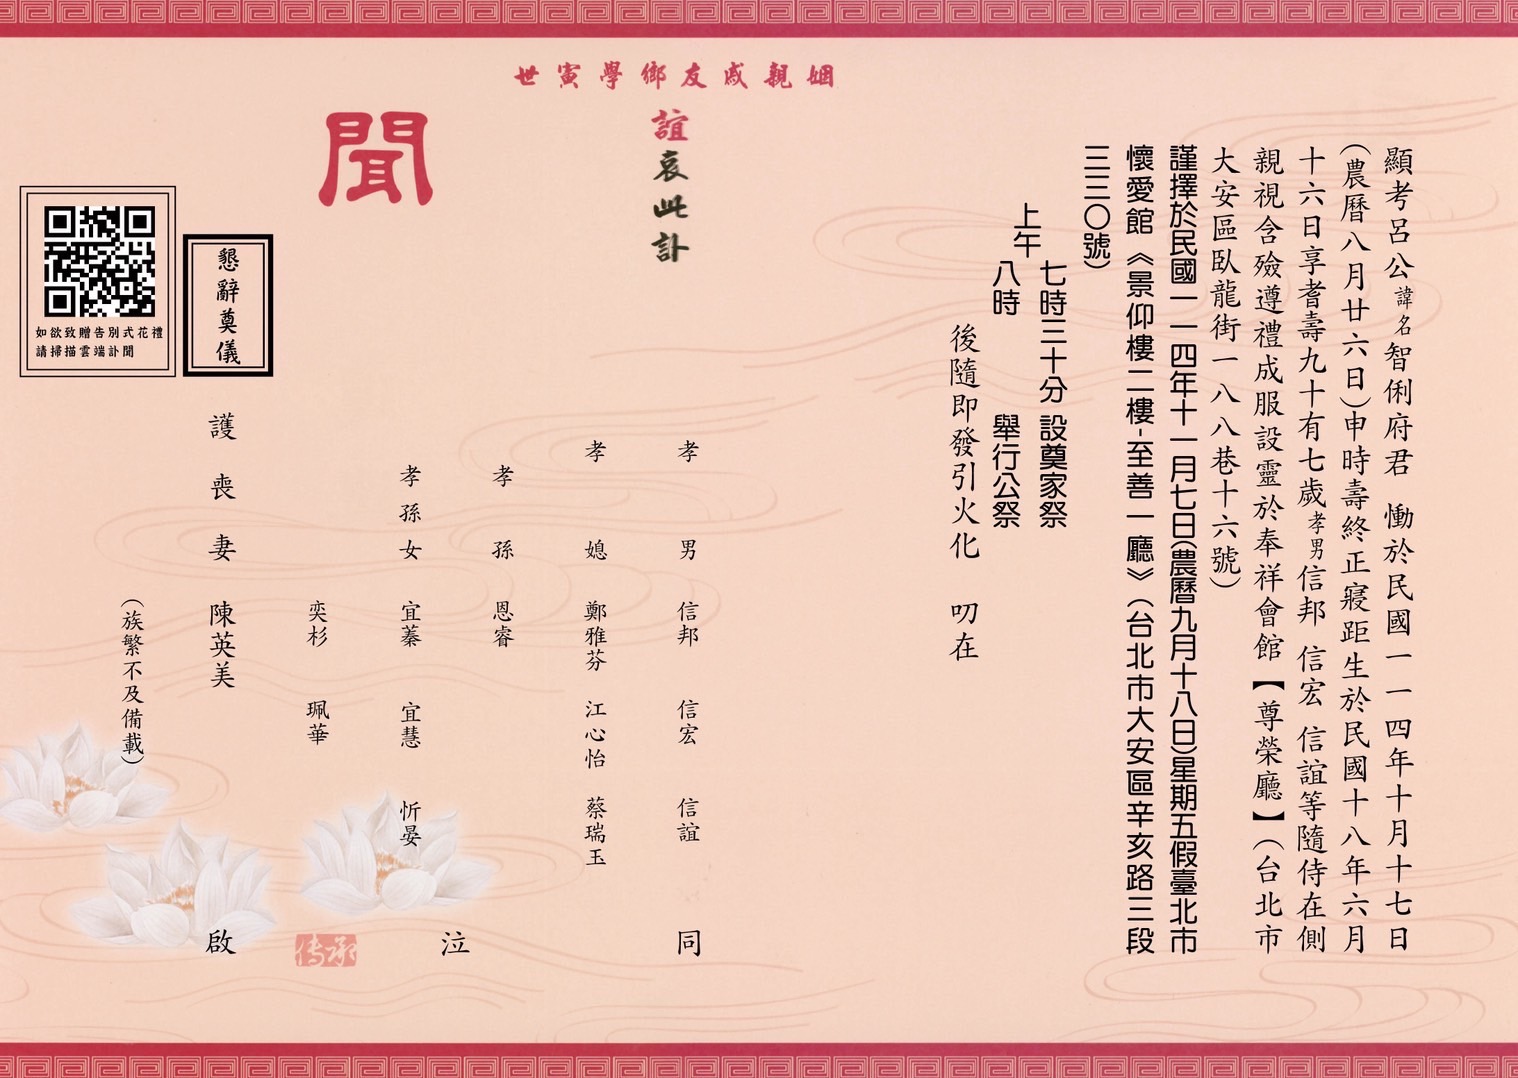 顯考呂公諱名智俐府君 慟於民國一一四年十月十七日
(農曆八月廿六日)申時壽終正寢距生於民國十八年六月
十六日享耆壽九十有七歲孝男信邦 信宏 信誼等隨侍在側
親視含殮遵禮成服設靈於奉祥會館【尊榮廳】(台北市
大安區臥龍街一八八巷十六號)
謹擇於民國一一四年十一月七日(農曆九月十八日)星期五假臺北市
懷愛館《景仰樓二樓-至善一廳》(台北市大安區辛亥路三段
三三〇號)
上午
七時三十分 設奠家祭
八時 舉行公祭
後隨即發引火化 叨在
姻親戚友鄉學寅世
誼哀此訃
聞
孝男 信邦 信宏 信誼 同
孝媳 鄭雅芬 江心怡 蔡瑞玉
孝孫 恩睿
泣
孝孫女 宜蓁 宜慧 忻晏
奕杉 珮華
传承
護喪妻 陳英美 啟
(族繁不及備載)
懇辭奠儀
如欲致贈告別式花禮
請掃描雲端訃聞